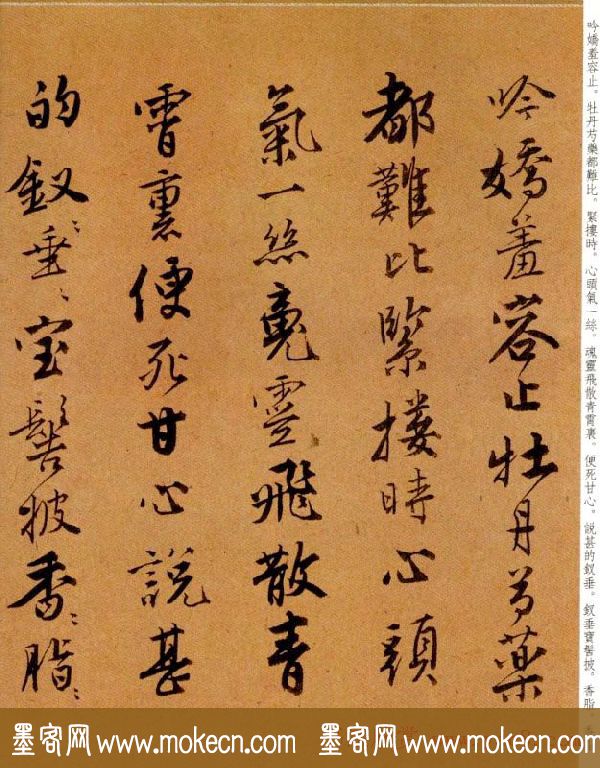 吟嬌羞容止牡丹芍藥
都難比緊摟時心頭
氣一絲魂靈飛散青
霄裏便死甘心說甚
的釵〻垂〻宝髻披香〻脂〻
吟嬌羞容止。牡丹芍藥都難比。緊摟時。心頭氣一絲。魂靈飛散青霄裏。便死甘心。說甚的釵垂。釵垂寶髻披。香脂
墨客网 www.mokecn.com 墨客网 www.mokecn.com